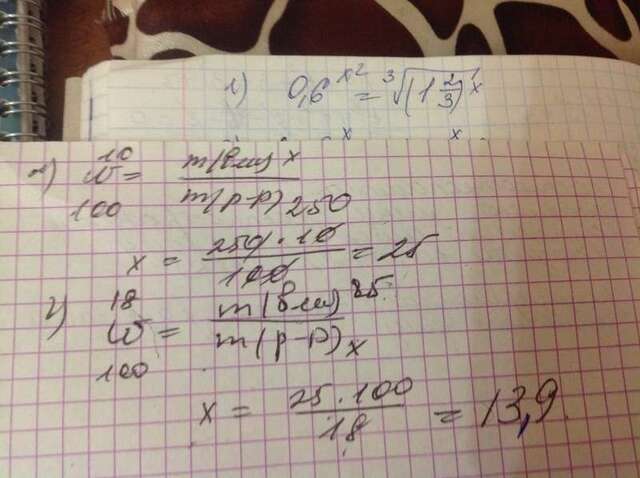 1) 0,6^x² = ³√(1 2/3)^x
x x
1) 10/100 W = m(вещ) x / m(р-р) 250
x = 250 · 10 / 100 = 25
2) 18/100 W = m(вещ) 25 / m(р-р) x
x = 25 · 100 / 18 = 13,9